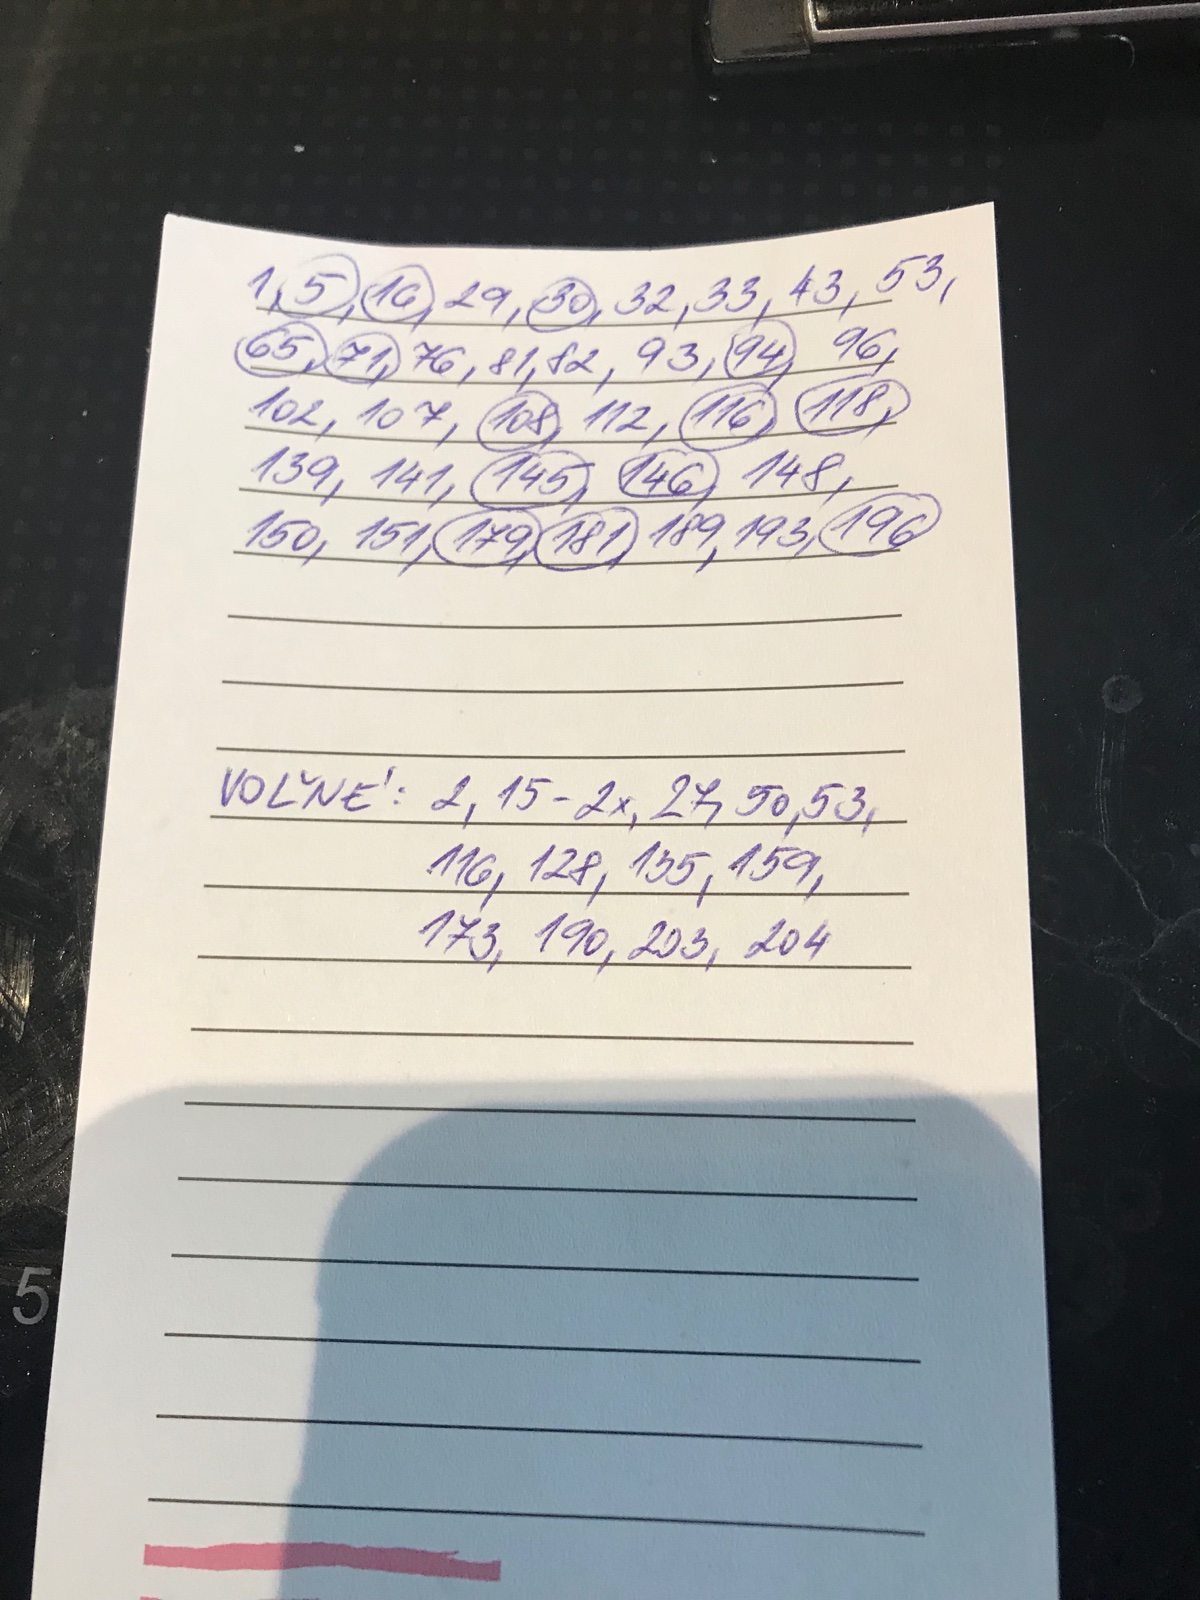 1, 5, 16, 29, 30, 32, 33, 43, 53,
65, 71, 76, 81, 82, 93, 94, 96,
102, 107, 108, 112, 116, 118,
139, 141, 145, 146, 148,
150, 151, 179, 181, 189, 193, 196
VOĽNÉ: 2, 15-2x, 27, 50, 53,
116, 128, 135, 159,
173, 190, 203, 204
5